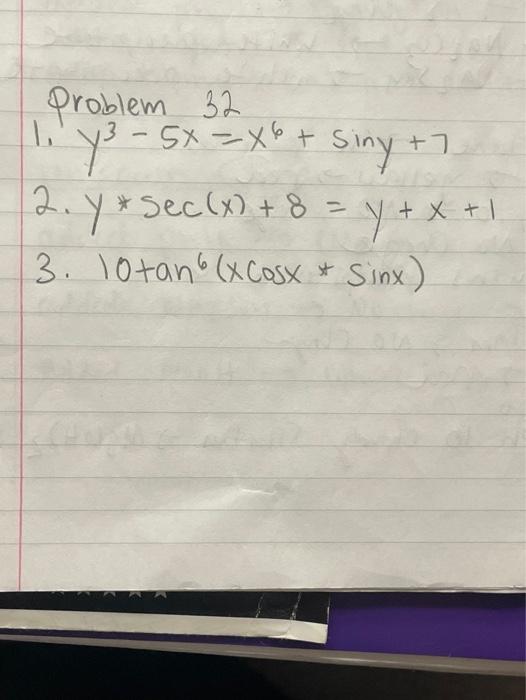 Problem 32
1. y³ - 5x = x⁶ + siny + 7
2. y * sec(x) + 8 = y + x + 1
3. 10tan⁶(xcosx * sinx)